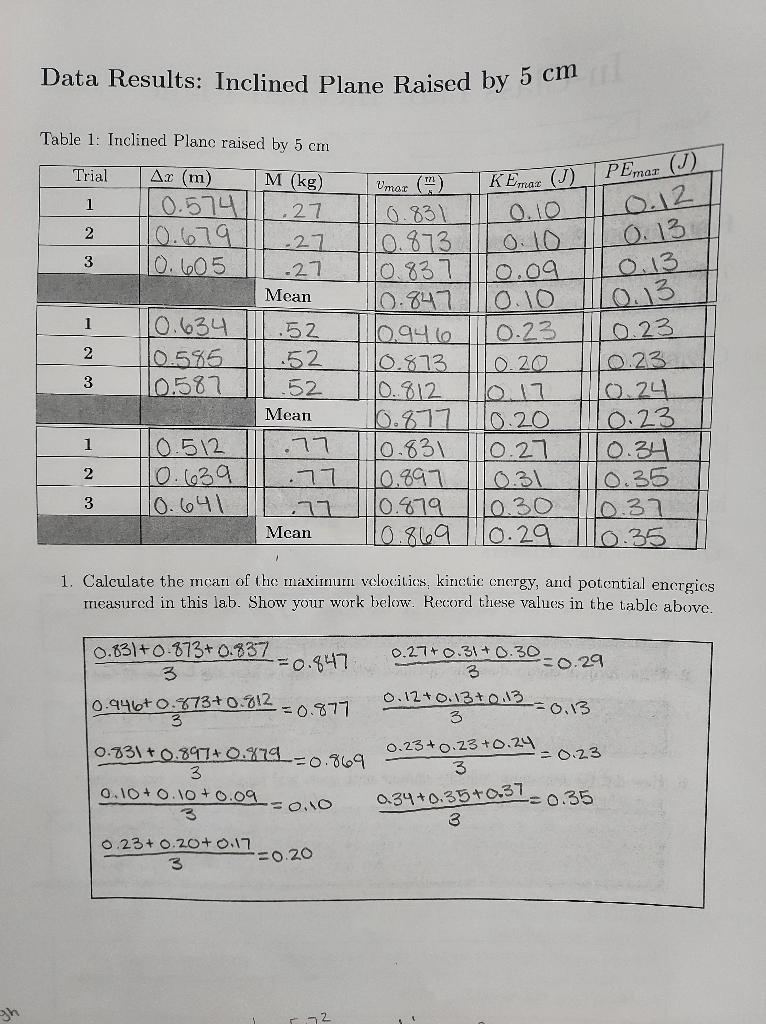 Data Results: Inclined Plane Raised by 5 cm
Table 1: Inclined Plane raised by 5 cm
Trial Δx (m) M (kg) v_max (m/s) KE_max (J) PE_max (J)
1 0.574 .27 0.831 0.10 0.12
2 0.679 .27 0.873 0.10 0.13
3 0.605 .27 0.837 0.09 0.13
Mean 0.847 0.10 0.13
1 0.634 .52 0.946 0.23 0.23
2 0.585 .52 0.873 0.20 0.23
3 0.587 .52 0.812 0.17 0.24
Mean 0.877 0.20 0.23
1 0.512 .77 0.831 0.27 0.34
2 0.639 .77 0.897 0.31 0.35
3 0.641 .77 0.879 0.30 0.37
Mean 0.869 0.29 0.35
1. Calculate the mean of the maximum velocities, kinetic energy, and potential energies
measured in this lab. Show your work below. Record these values in the table above.
0.831+0.873+0.837/3 = 0.847
0.946+0.873+0.812/3 = 0.877
0.831+0.897+0.879/3 = 0.869
0.10+0.10+0.09/3 = 0.10
0.23+0.20+0.17/3 = 0.20
0.27+0.31+0.30/3 = 0.29
0.12+0.13+0.13/3 = 0.13
0.23+0.23+0.24/3 = 0.23
0.34+0.35+0.37/3 = 0.35